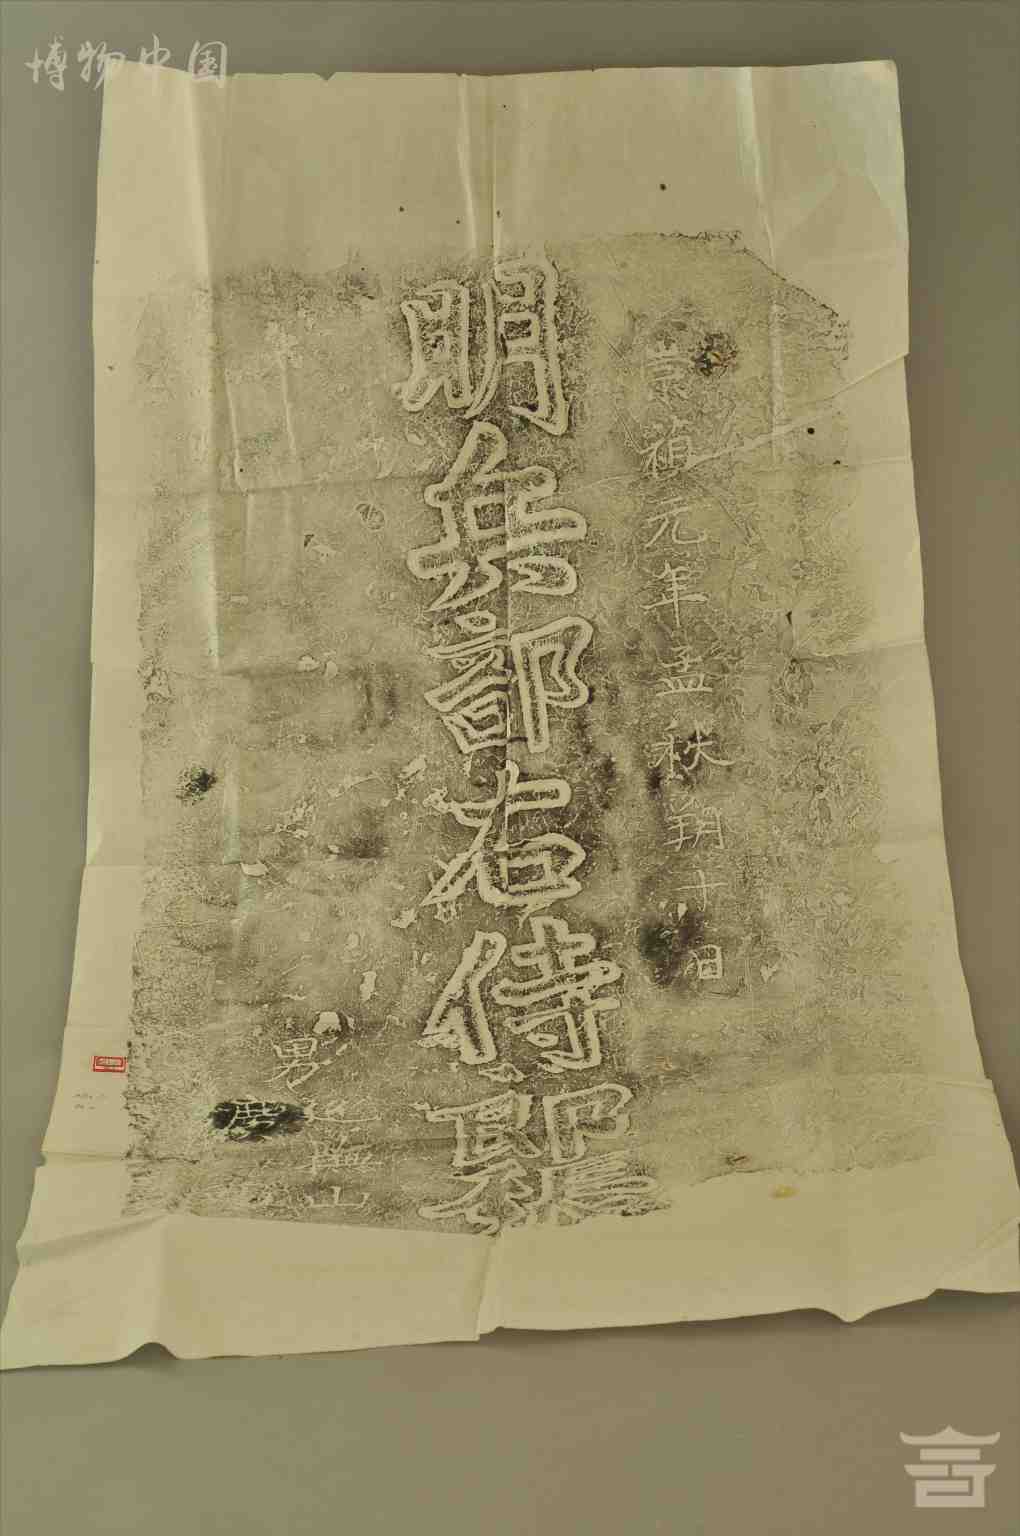 博物中国
崇禎元年孟秋朔十日
明兵部右侍郎張
男
巡撫山